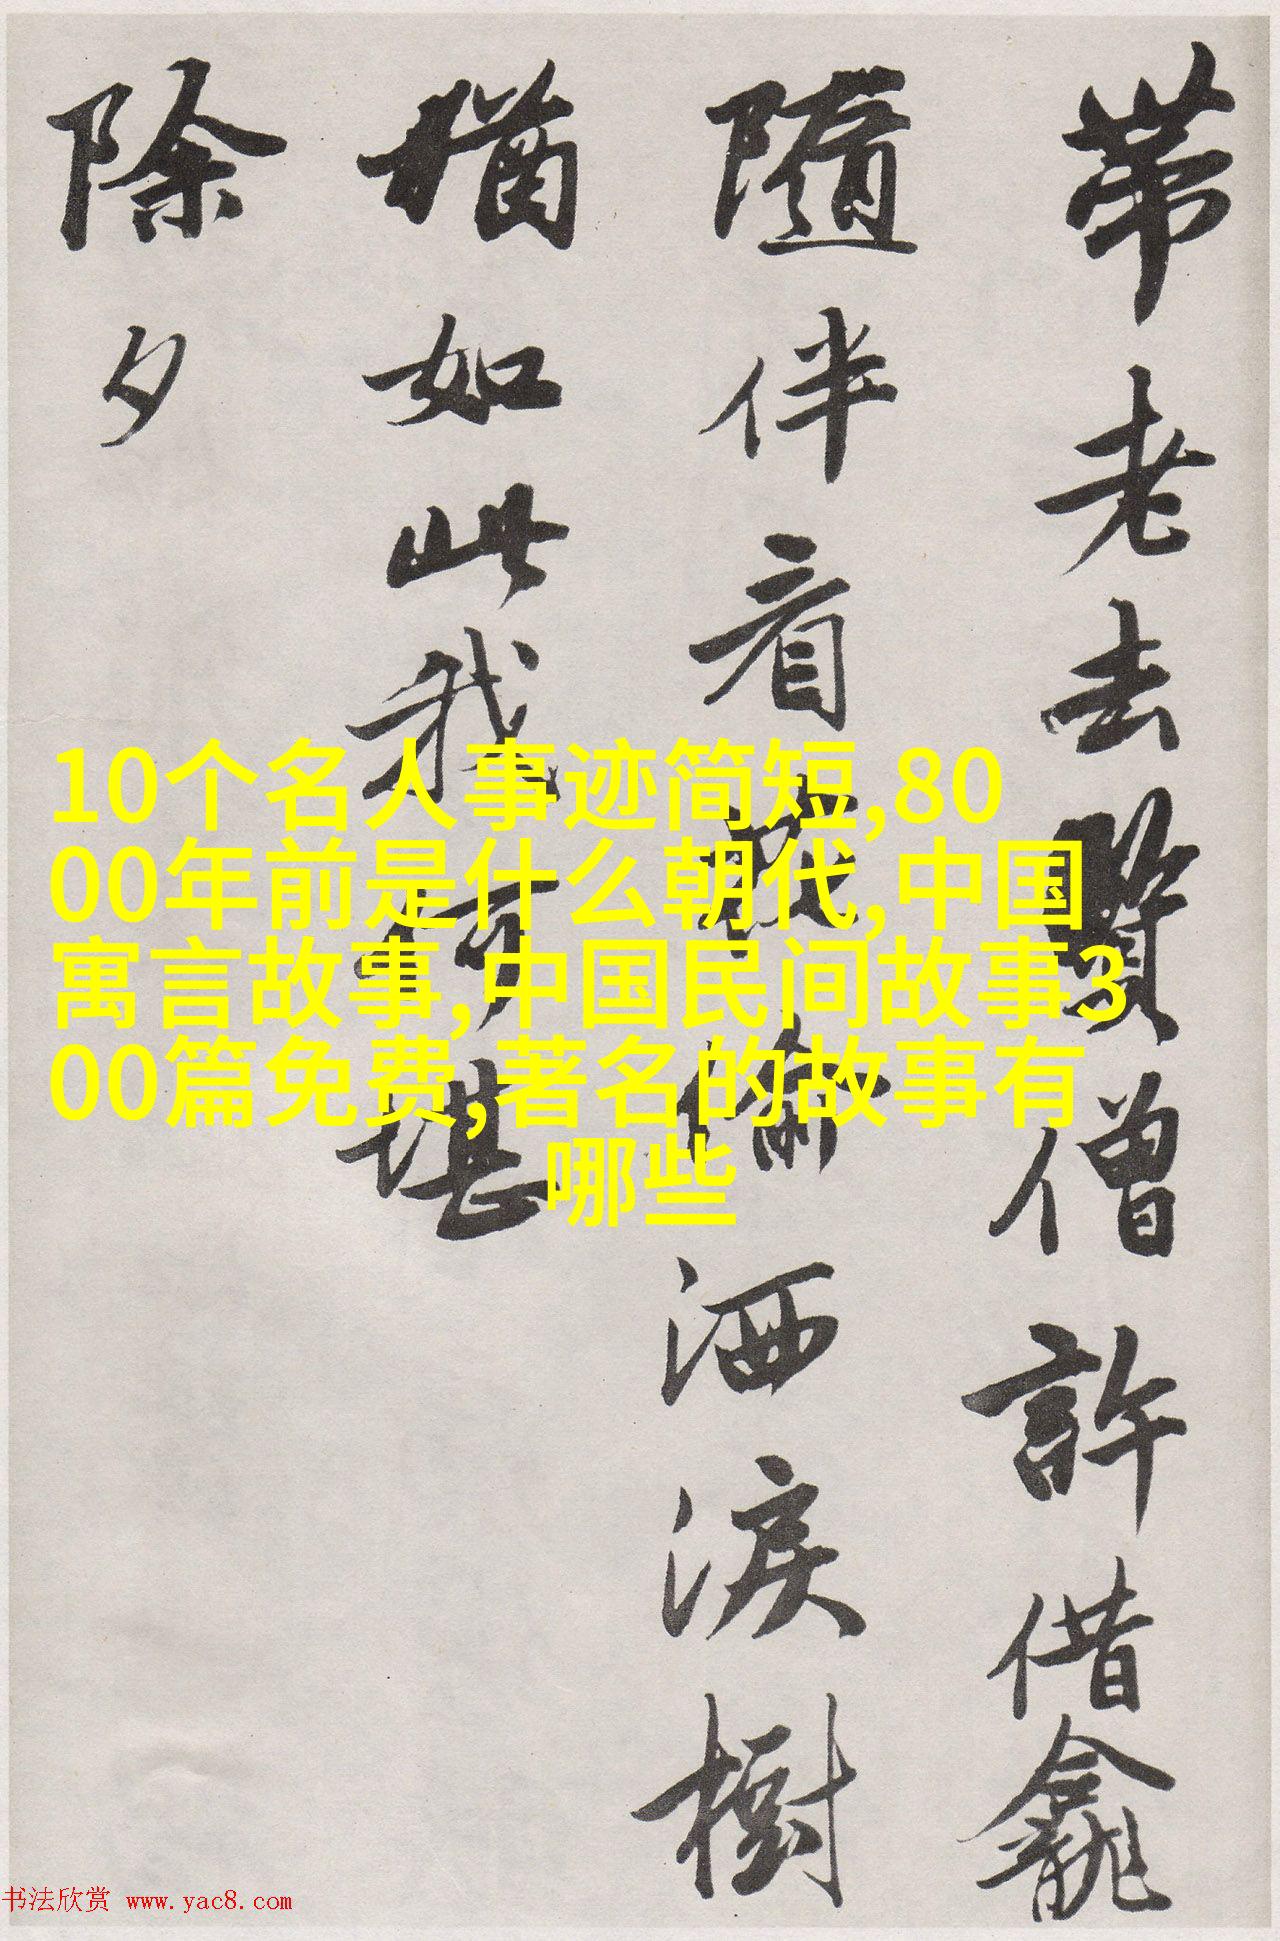 帶老去賢僧許借龕
隨伴看偷洒淚樹
猶如此我何堪
除夕
10个名人事迹简短,80
00年前是什么朝代,中国
寓言故事,中国民间故事3
00篇免费,著名的故事有
哪些
书法欣赏 www.yac8.com